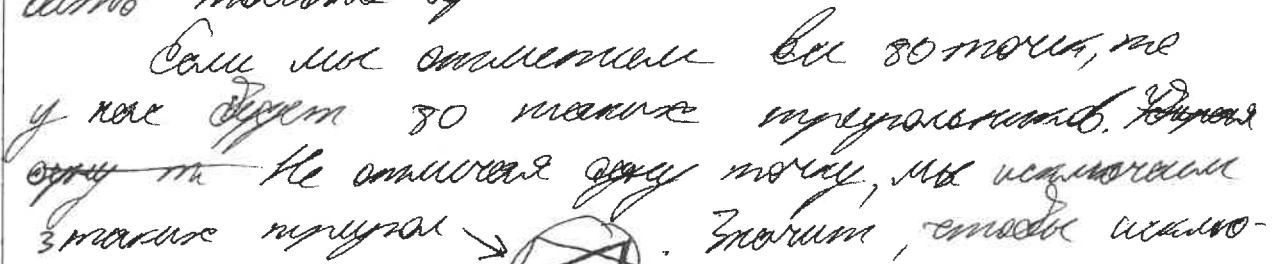 Если мы отметим все 80 точек, то
у нас будет 80 таких треугольников. Убирая
одну т Не отмечая одну точку, мы исключаем
3 таких треугол . Значит, чтобы исклю-